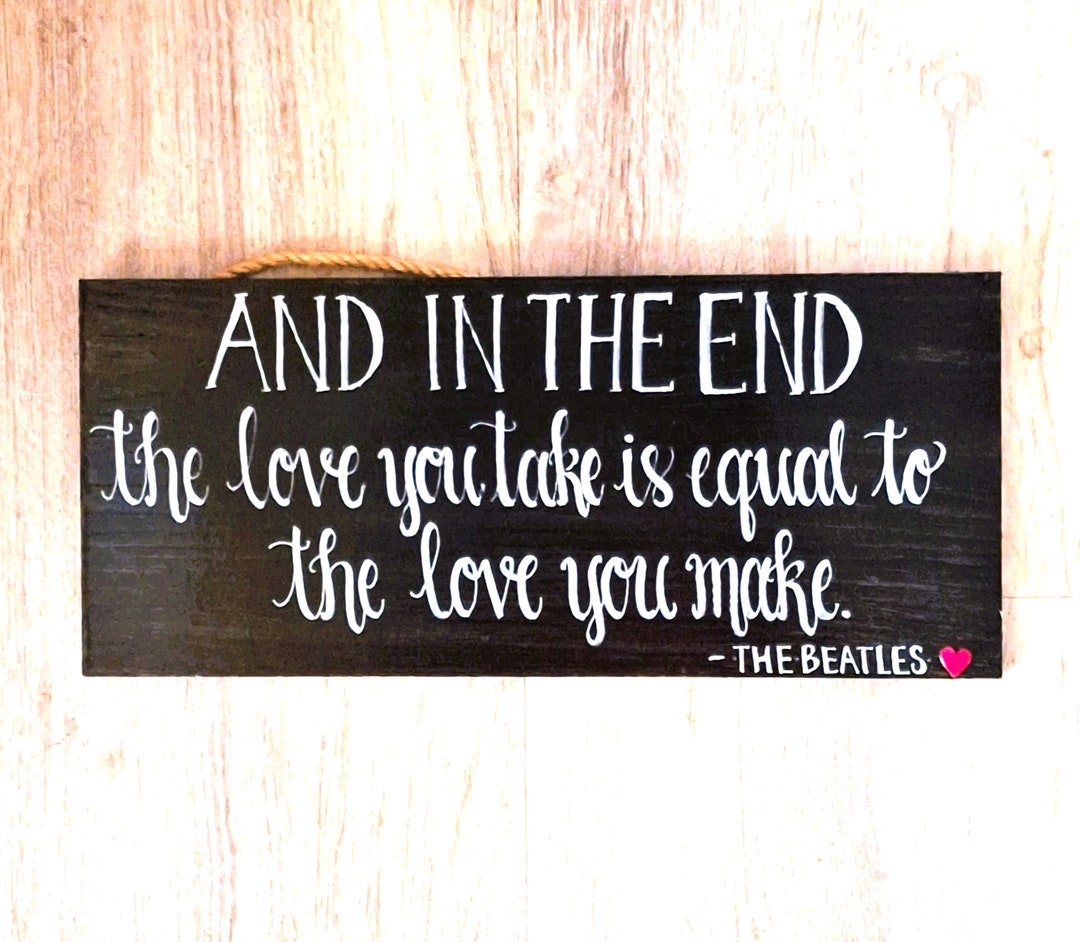 AND IN THE END
the love you take is equal to
the love you make.
- THE BEATLES